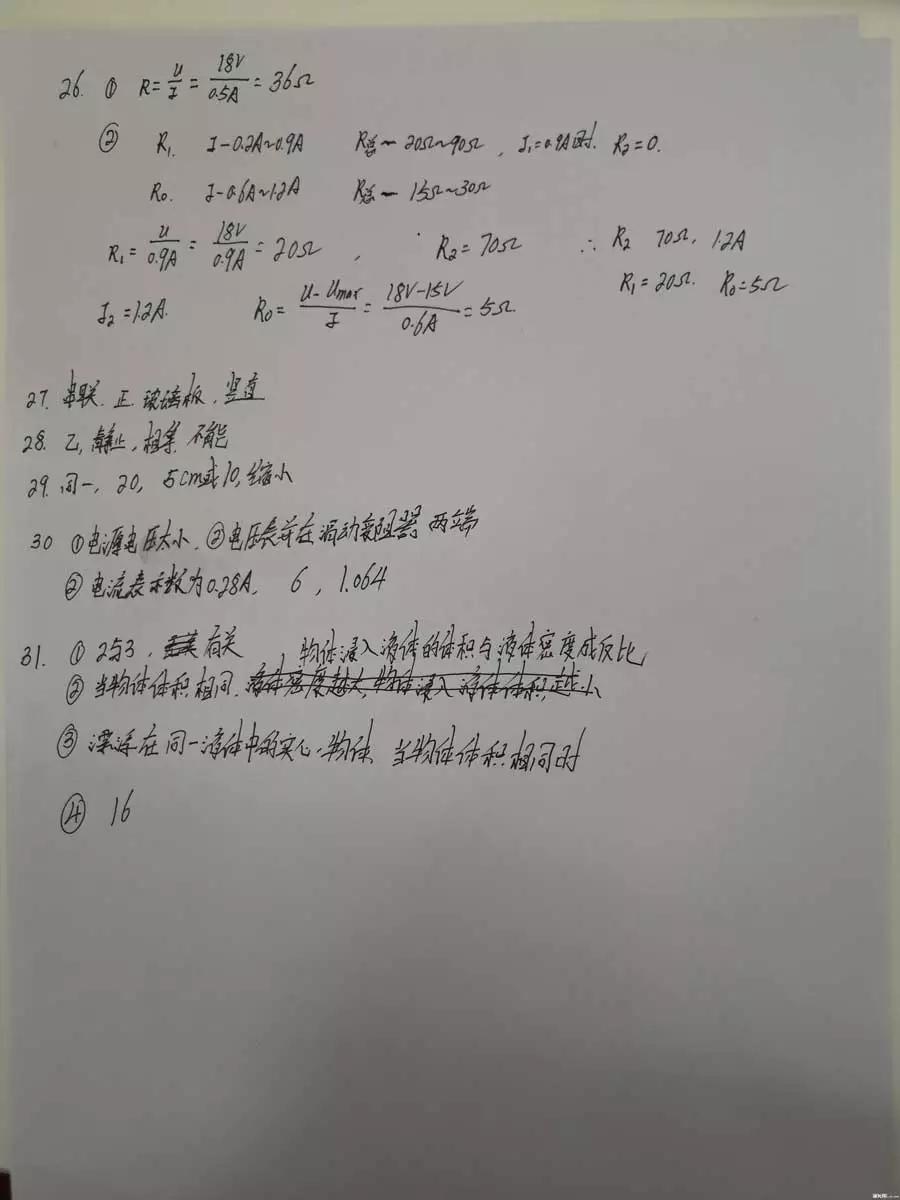 26. ① R=U/I=18V/0.5A=36Ω
② R₁. I-0.2A~0.9A R总-20Ω~90Ω, I₁=0.9A时. R₂=0.
R₀. I-0.6A~1.2A R总-15Ω~30Ω
R₁=U/0.9A=18V/0.9A=20Ω, R₂=70Ω ∴ R₂ 70Ω, 1.2A
R₁=20Ω. R₀=5Ω
I₂=1.2A. R₀=U-Umax/I=18V-15V/0.6A=5Ω.
27. 串联. 正. 玻璃板, 竖直
28. 乙, 静止, 相等. 不能
29. 同一, 20, 5cm或10, 缩小
30 ①电源电压太小. ②电压表并在滑动变阻器两端
②电流表示数为0.28A, 6, 1.064
31. ① 2与3, 有关 物体浸入液体的体积与液体密度成反比
② 当物体体积相同. 液体密度越大, 物体浸入液体体积越小
③ 漂浮在同一液体中的实心物体, 当物体体积相同时
④ 16